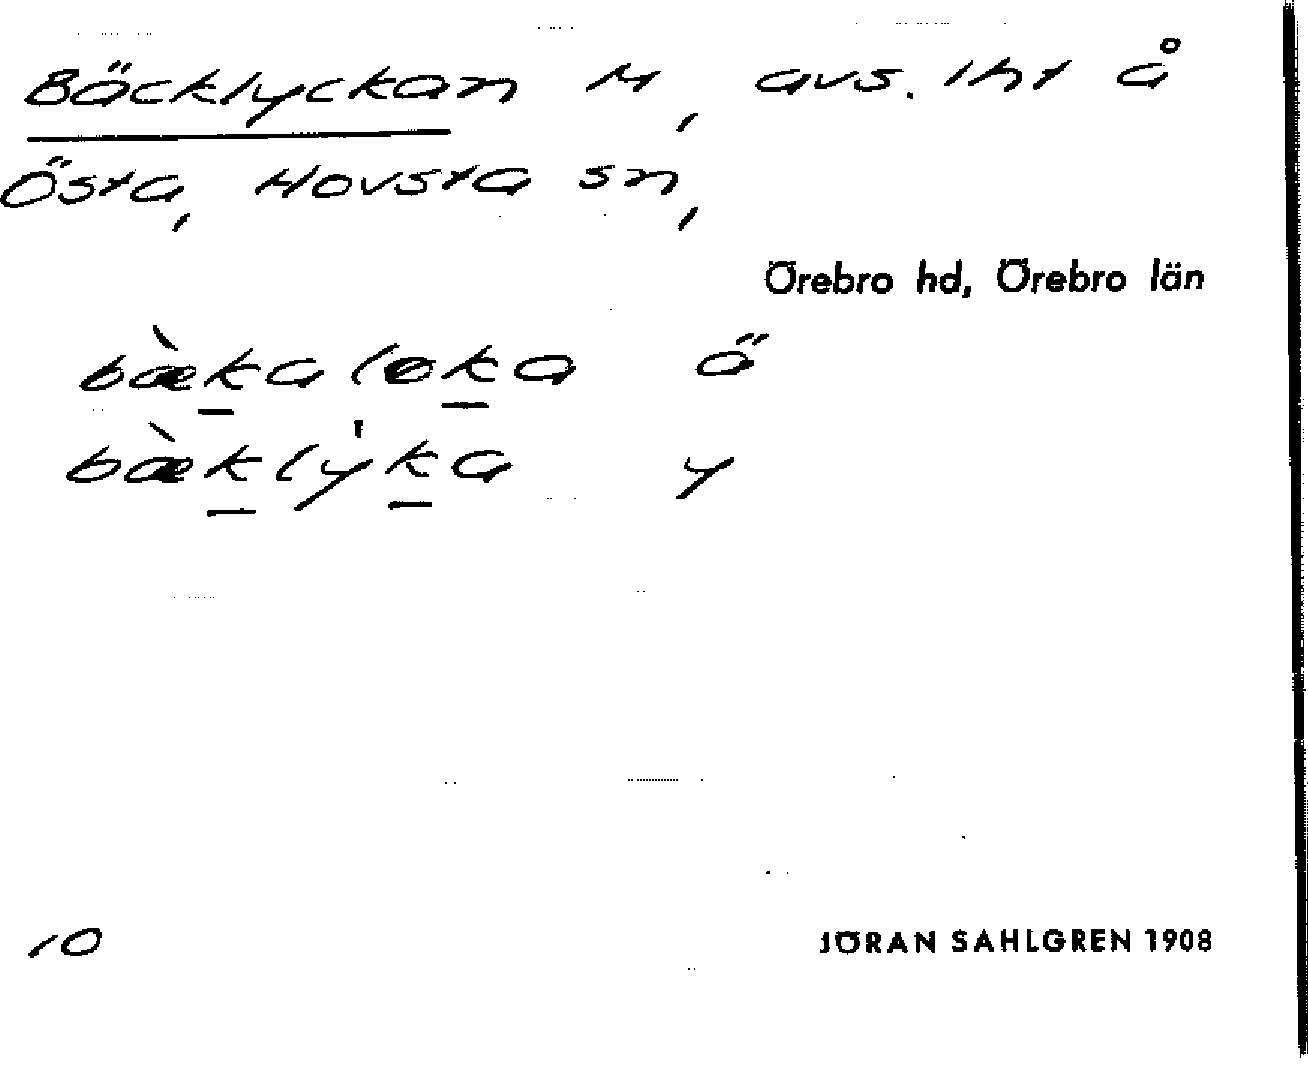 Bäcklyckan H, avs. lht å
Östa, Hovsta sn,
Örebro hd, Örebro län
bæ̀k̲aløk̲a ä
bæ̀k̲ly̍k̲a y
10 JÖRAN SAHLGREN 1908